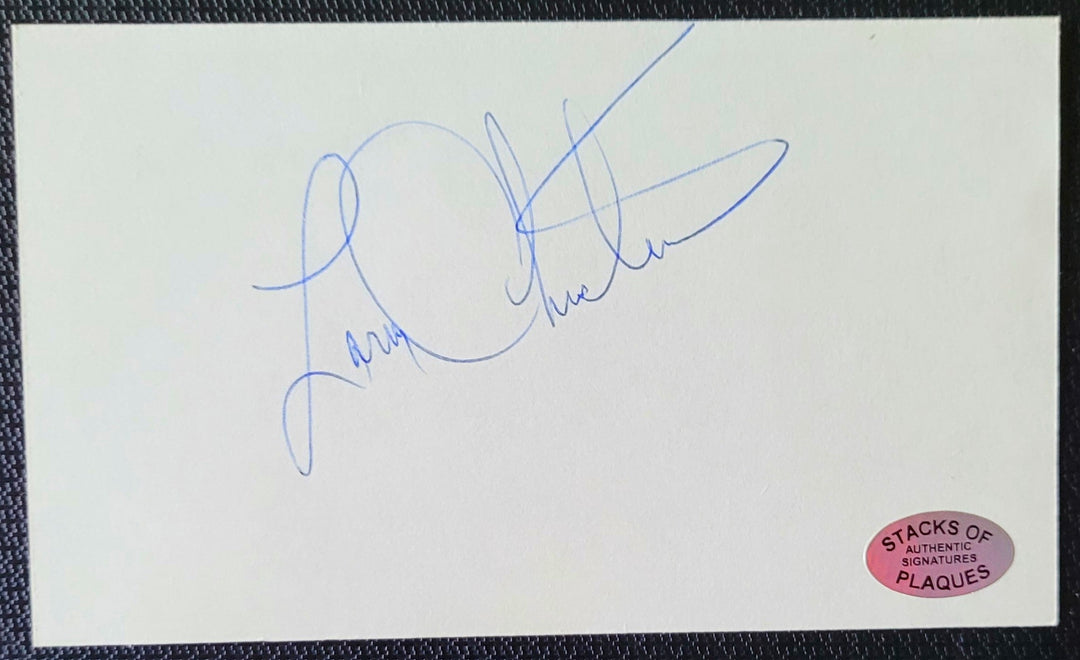 Larry
STACKS OF
AUTHENTIC
SIGNATURES
PLAQUES